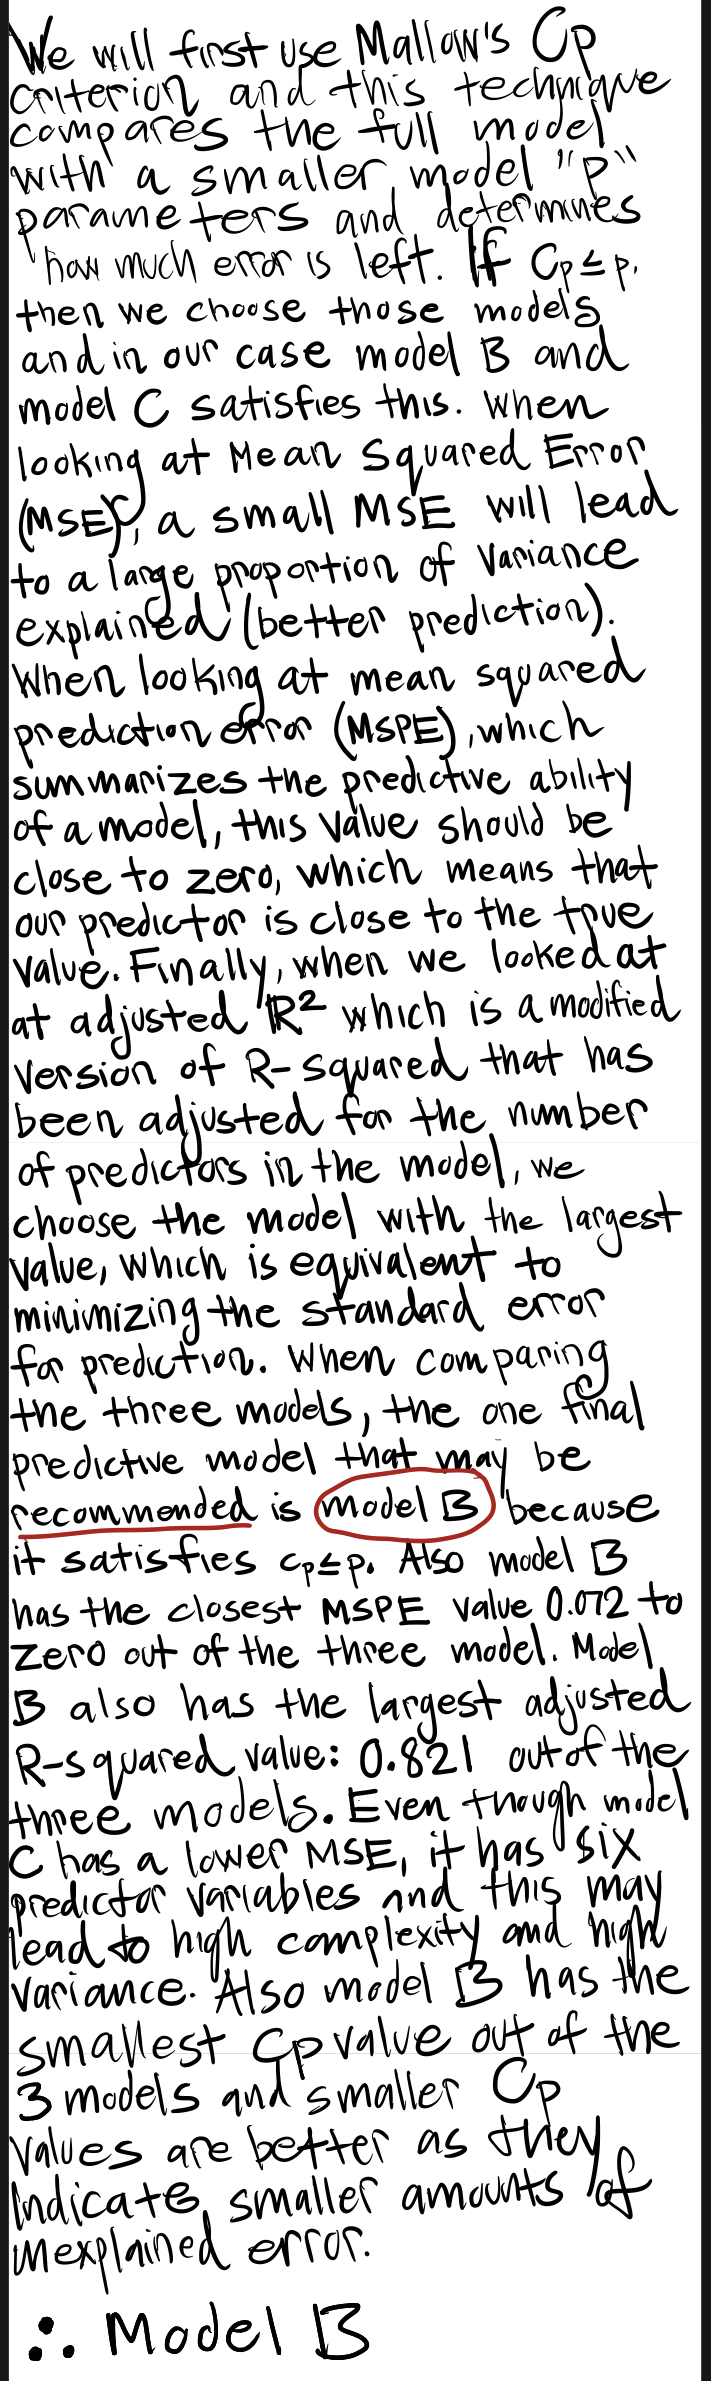 We will first use Mallow's Cp
criterion and this technique
compares the full model
with a smaller model "p"
parameters and determines
how much error is left. If Cp≤p,
then we choose those models
and in our case model B and
model C satisfies this. When
looking at Mean Squared Error
(MSE), a small MSE will lead
to a large proportion of variance
explained (better prediction).
When looking at mean squared
prediction error (MSPE), which
summarizes the predictive ability
of a model, this value should be
close to zero, which means that
our predictor is close to the true
value. Finally, when we looked at
at adjusted R² which is a modified
version of R-squared that has
been adjusted for the number
of predictors in the model, we
choose the model with the largest
value, which is equivalent to
minimizing the standard error
for prediction. When comparing
the three models, the one final
predictive model that may be
recommended is model B because
it satisfies Cp≤p. Also model B
has the closest MSPE value 0.072 to
zero out of the three model. Model
B also has the largest adjusted
R-squared value: 0.821 out of the
three models. Even though model
C has a lower MSE, it has six
predictor variables and this may
lead to high complexity and high
variance. Also model B has the
smallest Cp value out of the
3 models and smaller Cp
values are better as they
indicate smaller amounts of
unexplained error.
∴ Model B